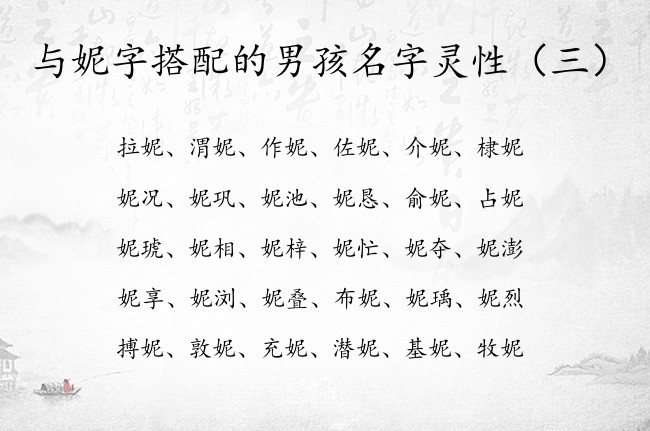 与妮字搭配的男孩名字灵性（三）
拉妮、渭妮、作妮、佐妮、介妮、棣妮
妮况、妮巩、妮池、妮恳、俞妮、占妮
妮琥、妮相、妮梓、妮忙、妮夺、妮澎
妮享、妮浏、妮叠、布妮、妮瑀、妮烈
搏妮、敦妮、充妮、潜妮、基妮、牧妮